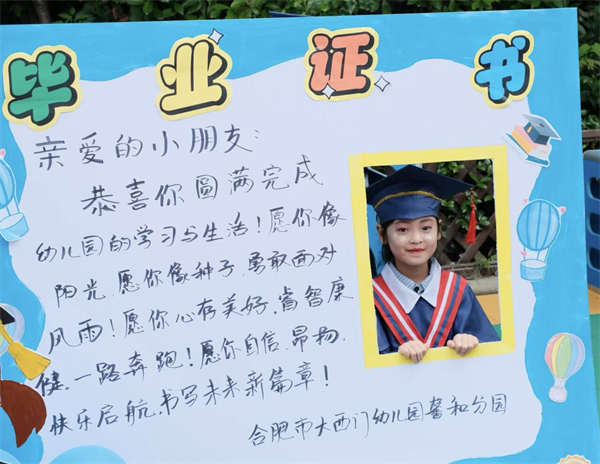 毕业证书
亲爱的小朋友:
恭喜你圆满完成
幼儿园的学习与生活!愿你像
阳光,愿你像种子,勇敢面对
风雨!愿你心有美好,睿智康
健,一路奔跑!愿你自信、昂扬,
快乐启航,书写未来新篇章!
合肥市大西门幼儿园馨和分园